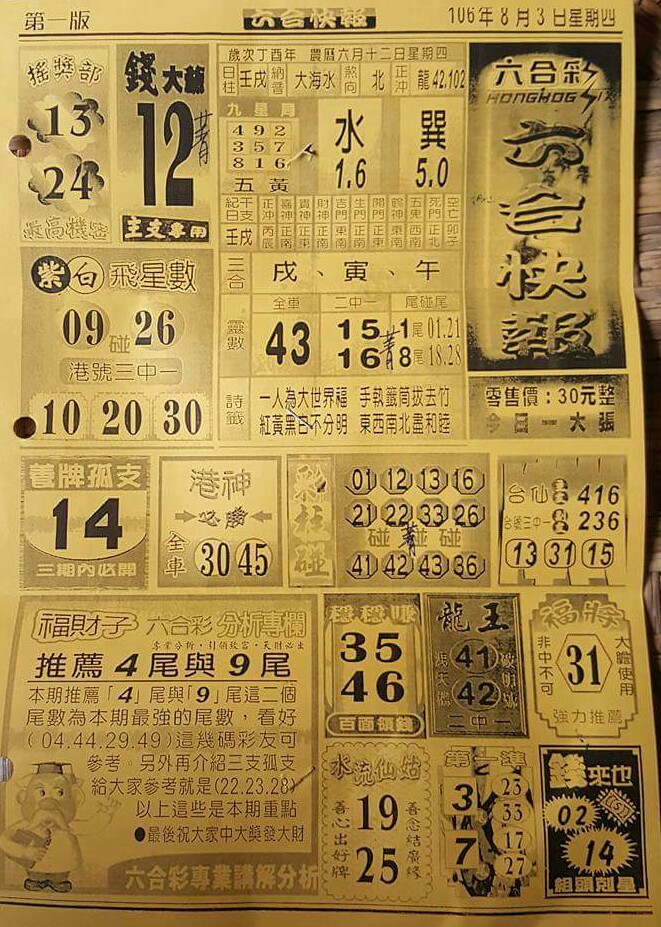 第一版
六合快報
106年8月3日星期四
搖獎部
13
24
最高機密
錢大龍
12
主支專用
歲次丁酉年 農曆六月十二日星期四
日柱 壬戌 納音 大海水 煞向 北 正沖 龍42.102
九星局
4 9 2
3 5 7
8 1 6
五黃
水
1.6
巽
5.0
紀日 干支 正沖 喜神 貴神 財神 吉門 生門 開門 鶴神 五鬼 死門 空亡
壬戌
三合 戌、寅、午
靈數
全車
43
二中一
15
16
尾碰尾
1尾 01.21
8尾 18.28
詩籤
一人為大世界福 手執籤筒拔去竹
紅黃黑白不分明 東西南北盡和睦
六合彩
六合快報
零售價：30元整
今日一大張
紫白飛星數
09碰26
港號三中一
10 20 30
養牌孤支
14
三期內必開
港神
必勝
全車
30 45
彩柱碰
01 12 13 16
21 22 33 26
碰 碰 碰
41 42 43 36
台仙 416
236
13 31 15
福財子 六合彩 分析專欄
專業分析・引領致富・天財必出
推薦4尾與9尾
本期推薦「4」尾與「9」尾這二個
尾數為本期最強的尾數，看好
(04.44.29.49)這幾碼彩友可
參考。另外再介紹三支孤支
給大家參考就是(22.23.28)
以上這些是本期重點
●最後祝大家中大獎發大財
六合彩專業講解分析
穩穩賺
35
46
百面領錢
龍王
41
42
二中一
福將
非中不可
31
大膽使用
強力推薦
水流仙姑
善心出好牌
19
25
善念結廣緣
第一準
3
7
23
33
17
27
錢來也
02
14
組頭剋星